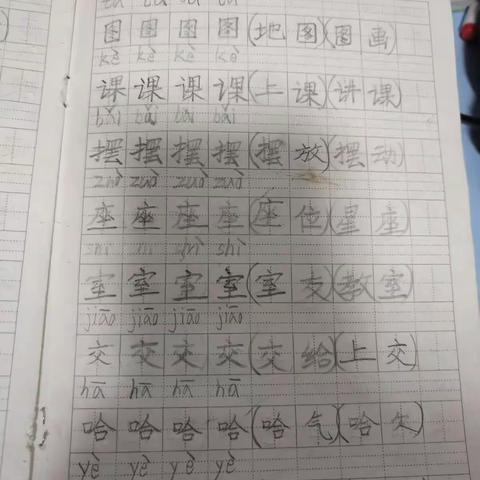 图图图图(地图)(图画)
kè kè kè kè
课课课课(上课)(讲课)
bǎi bǎi bǎi bǎi
摆摆摆摆(摆放)(摆动)
zuò zuò zuò zuò
座座座座(座位)(星座)
shì shì shì
室室室室(室友)(教室)
jiāo jiāo jiāo jiāo
交交交交(交给)(上交)
hā hā hā hā
哈哈哈哈(哈气)(哈欠)
yè yè yè yè